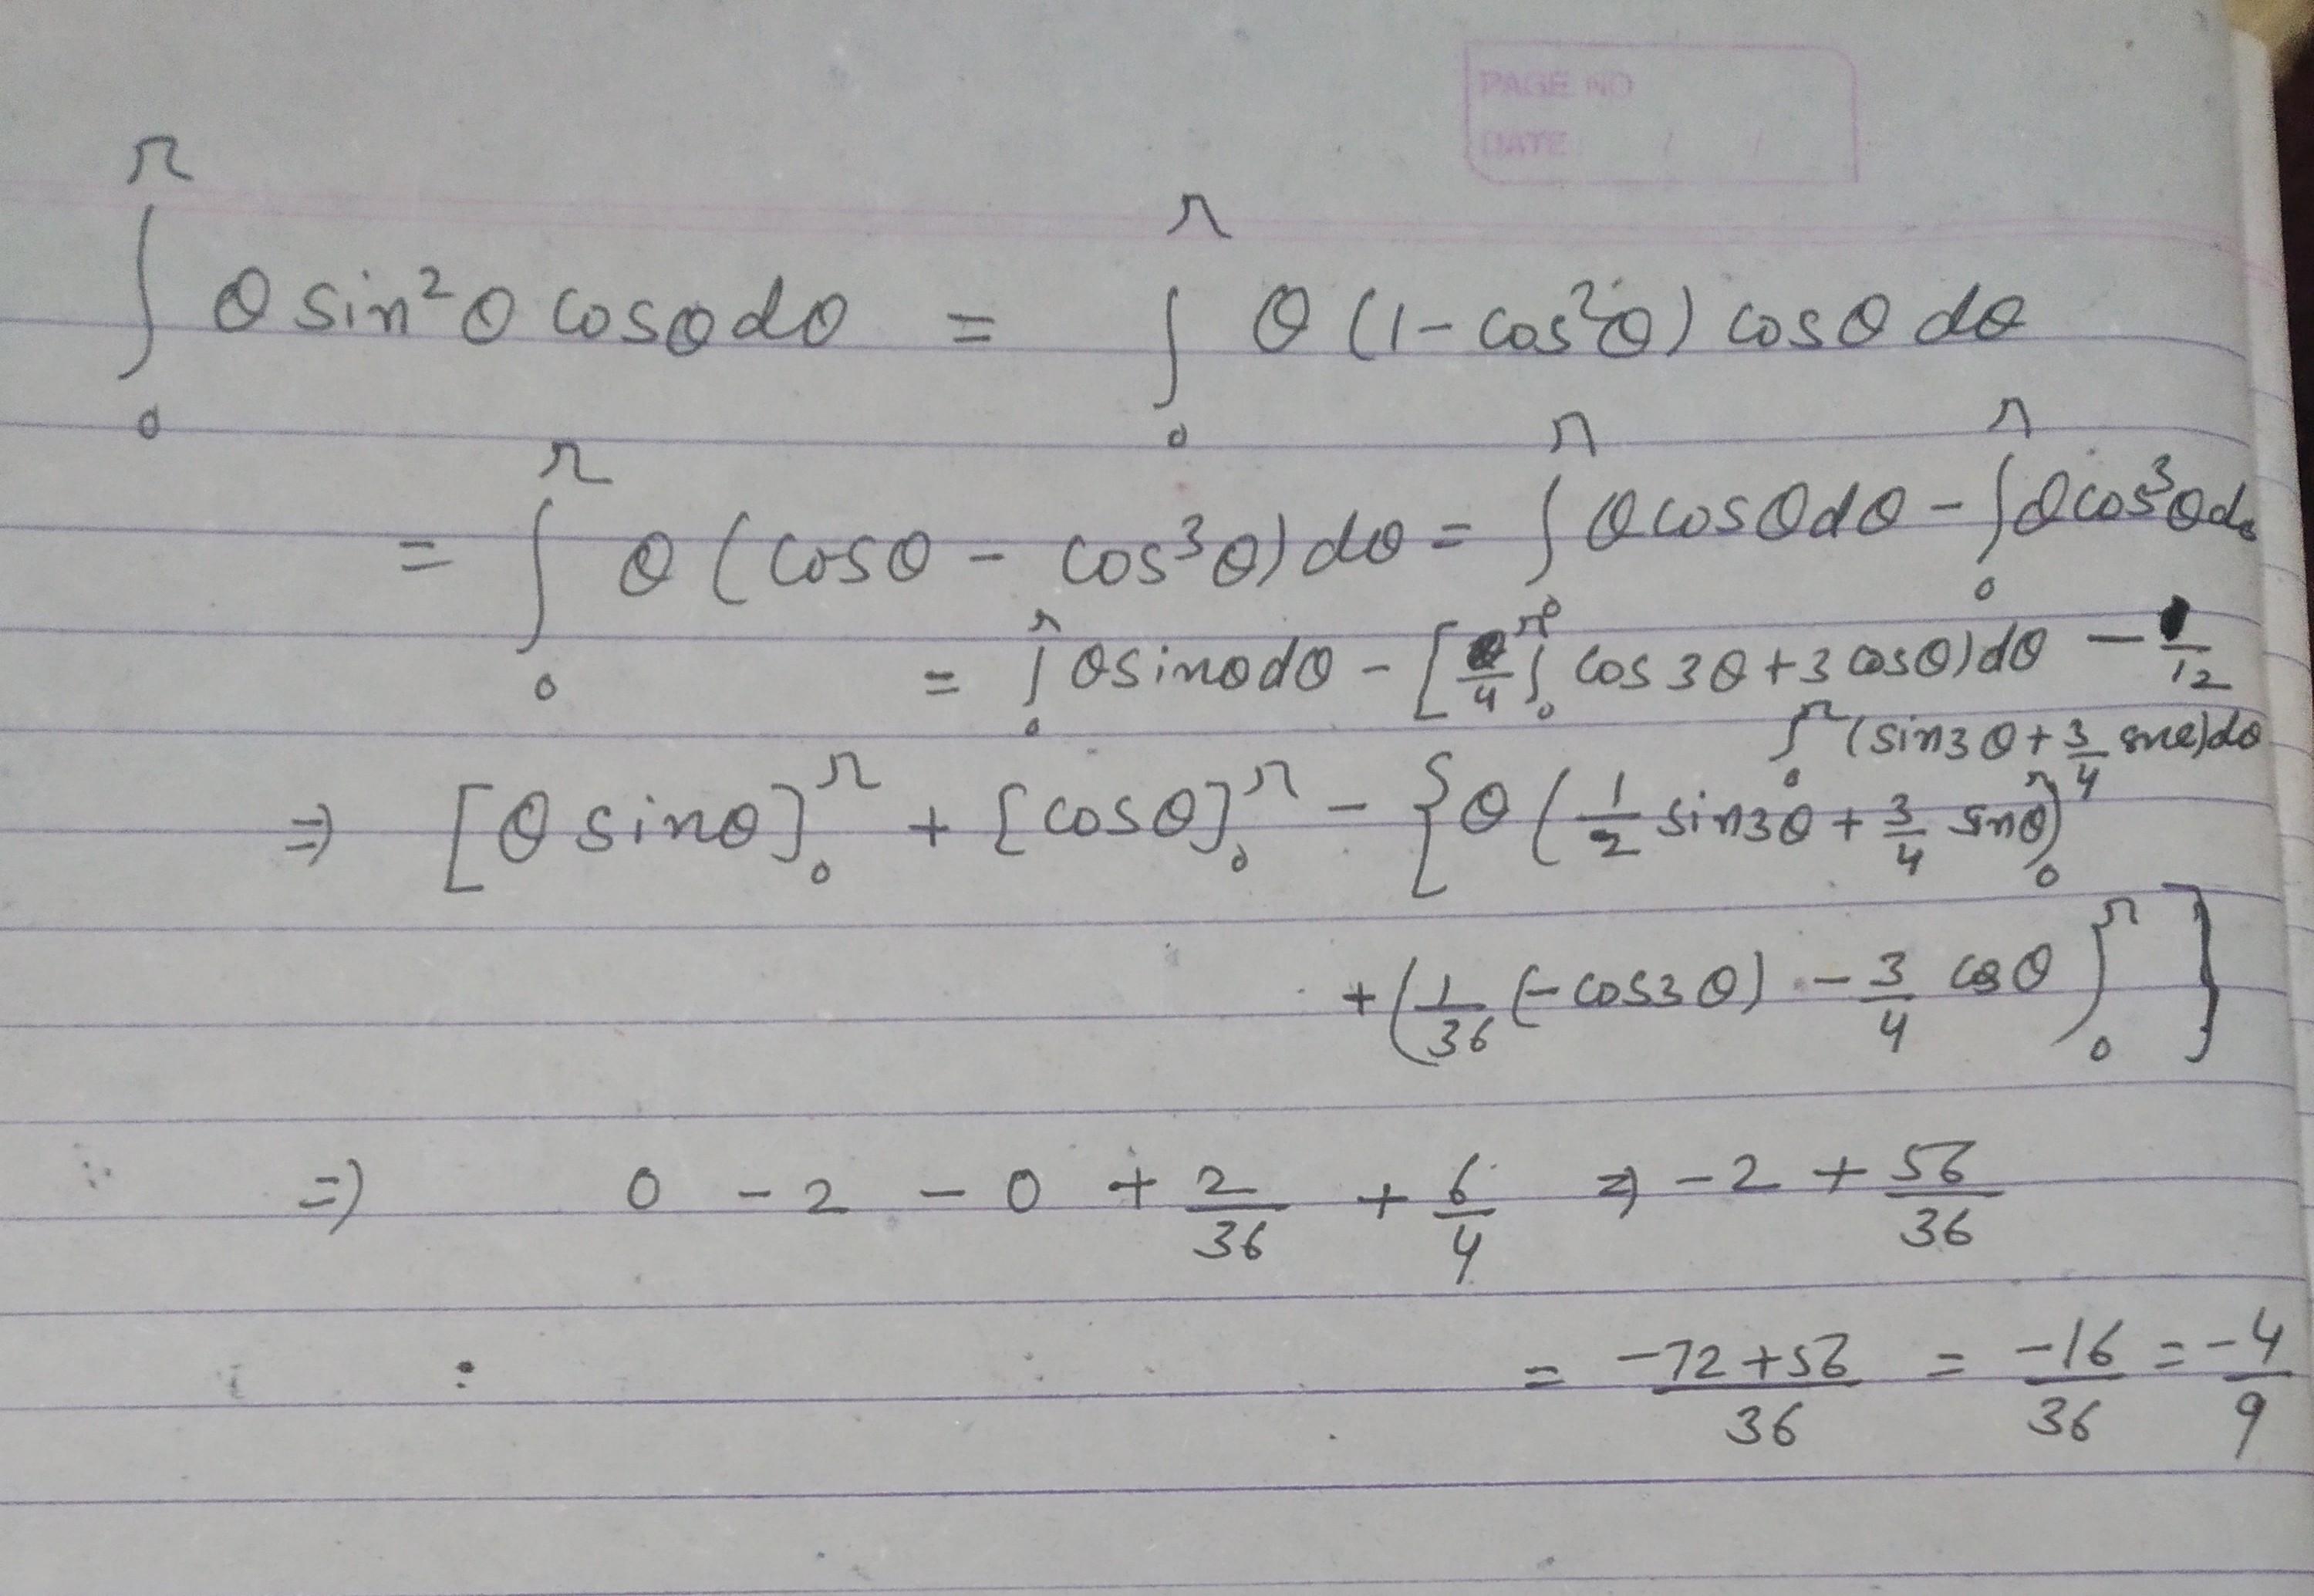 PAGE NO
DATE / /
∫₀^π θ sin²θ cosθ dθ = ∫₀^π θ (1 - cos²θ) cosθ dθ
= ∫₀^π θ (cosθ - cos³θ) dθ = ∫₀^π θ cosθ dθ - ∫₀^π θ cos³θ dθ
= ∫₀^π θ sinθ dθ - [θ/4 ∫₀^π cos 3θ + 3 cosθ) dθ - 1/12
∫₀^π (sin3θ + 3/4 sinθ) dθ
⇒ [θ sinθ]₀^π + [cosθ]₀^π - {θ (1/2 sin3θ + 3/4 sinθ)₀^π
+ (1/36 (-cos3θ) - 3/4 cosθ)₀^π }
⇒ 0 - 2 - 0 + 2/36 + 6/4 ⇒ -2 + 56/36
= (-72 + 56)/36 = -16/36 = -4/9